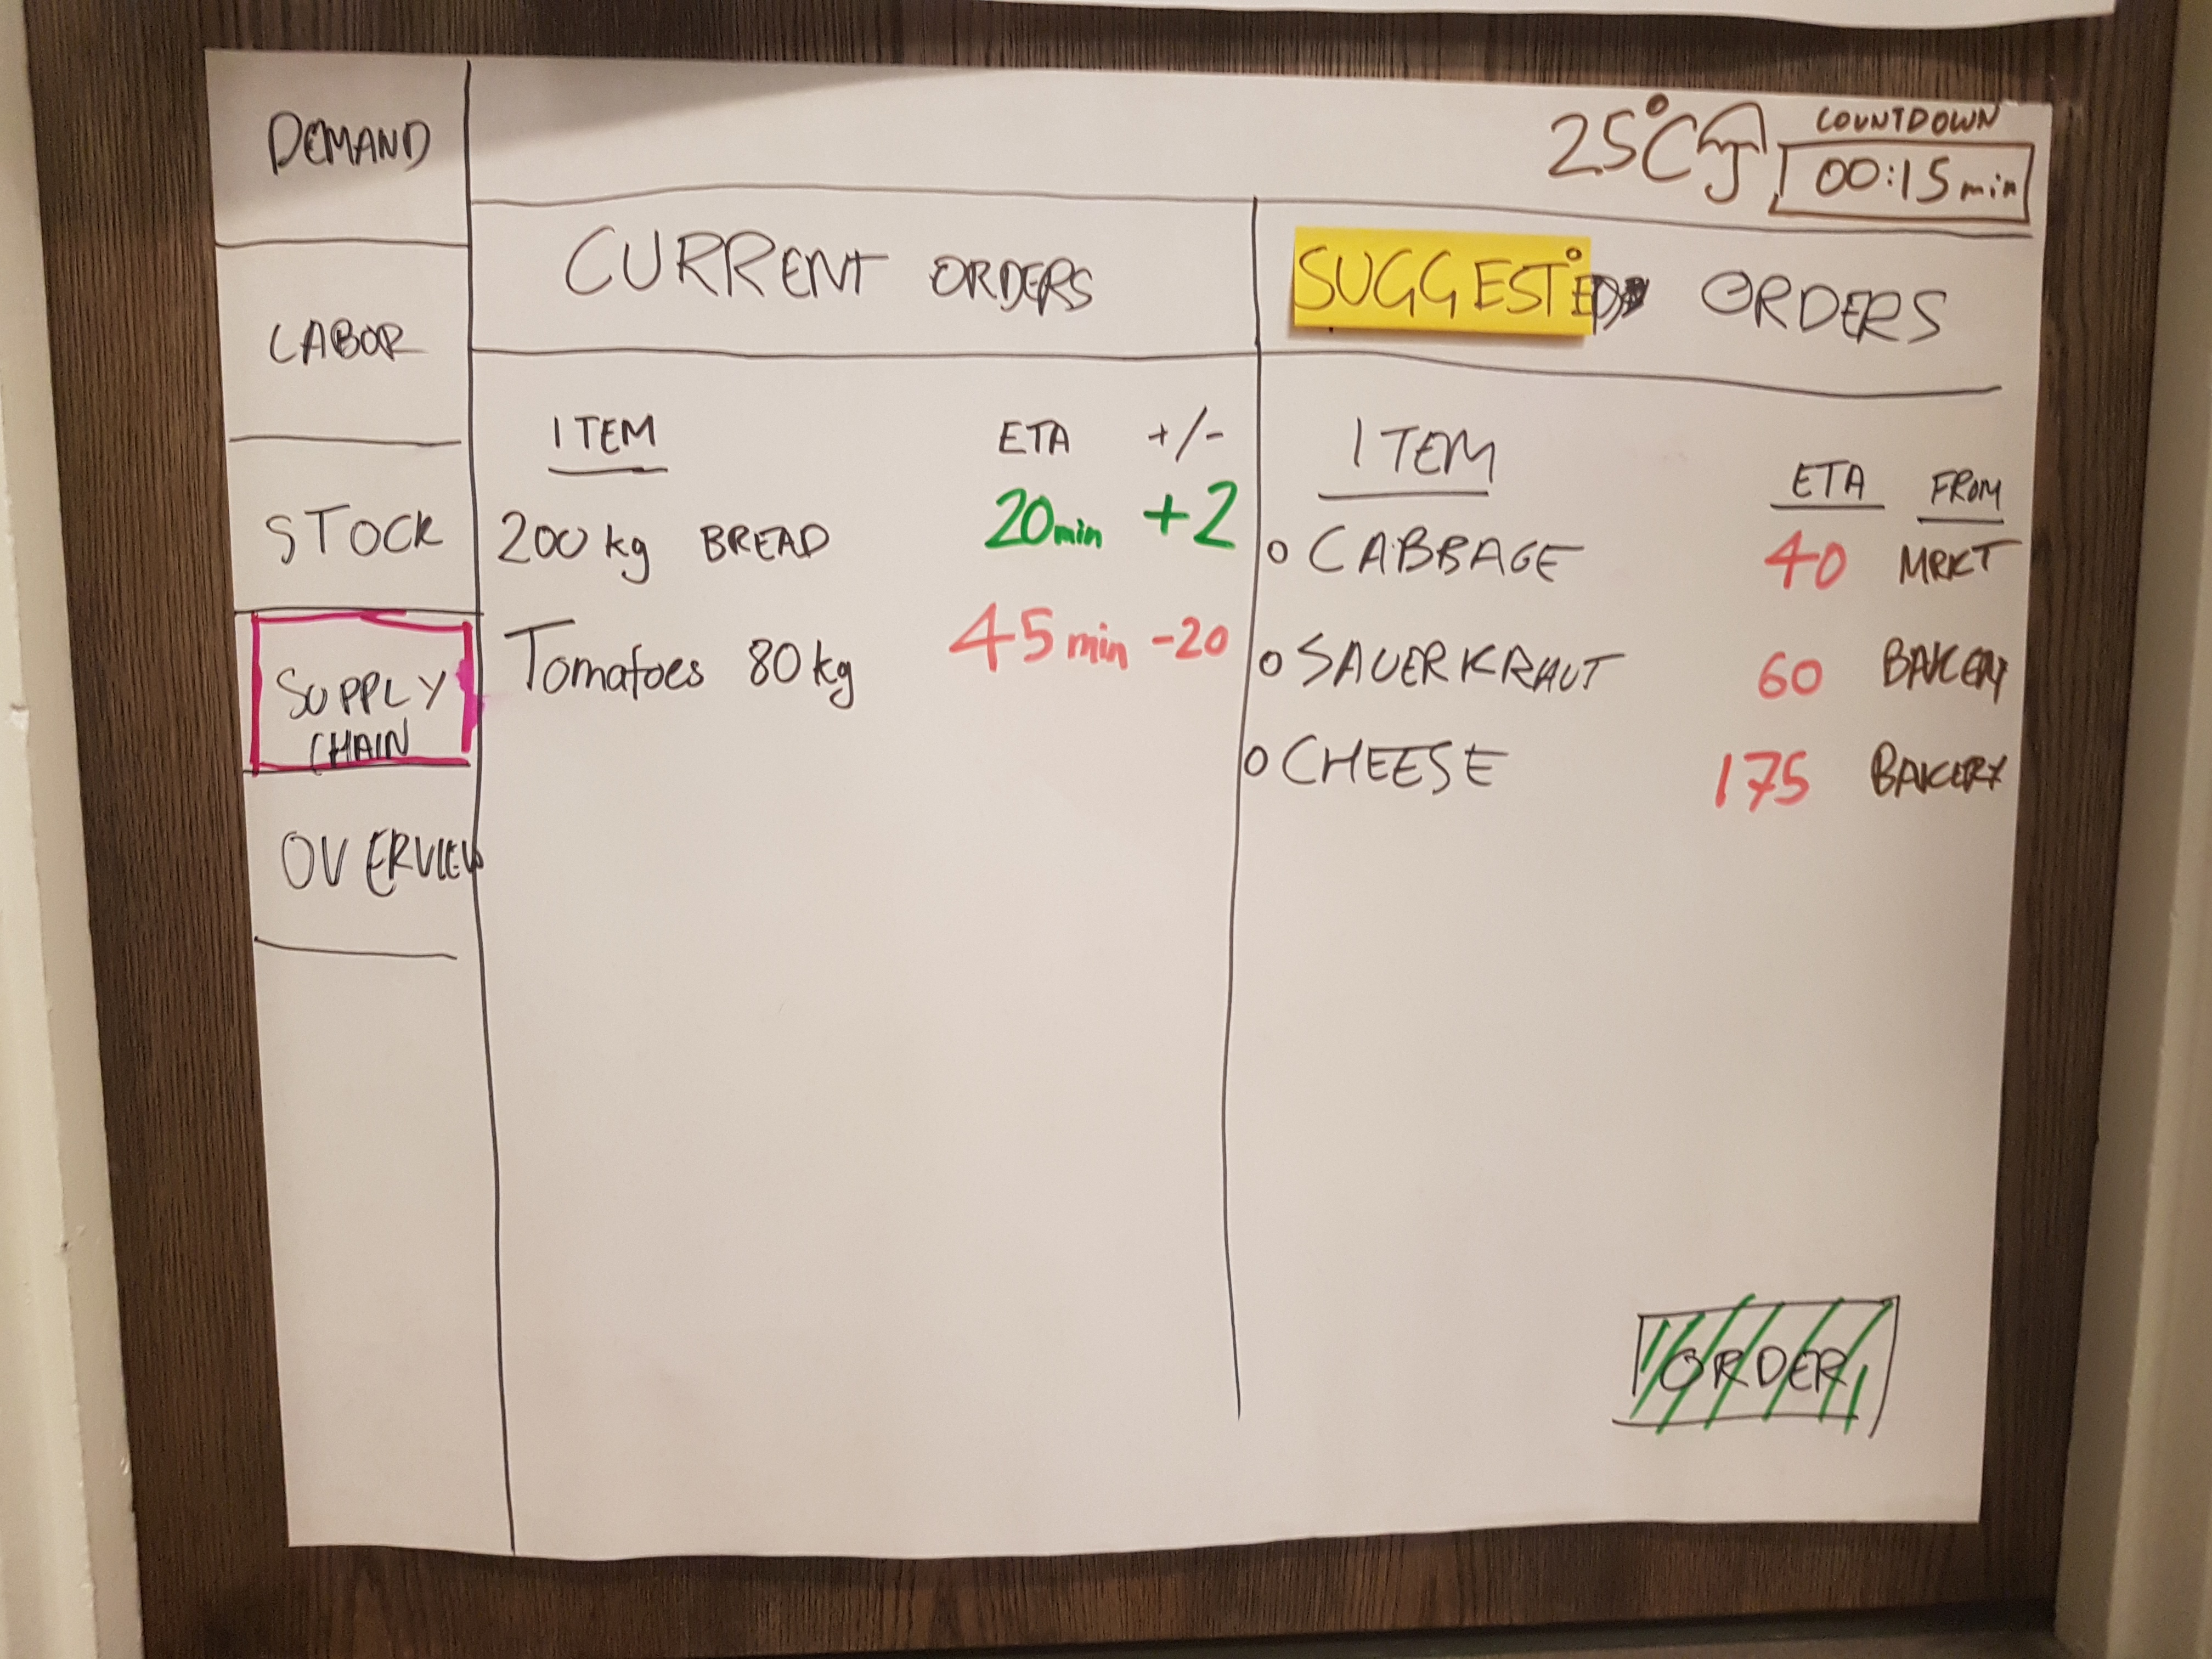 DEMAND
LABOR
STOCK
SUPPLY
CHAIN
OVERVIEW
25°C
COUNTDOWN
00:15 min
CURRENT ORDERS
ITEM ETA +/-
200 kg BREAD 20min +2
Tomatoes 80 kg 45 min -20
SUGGESTED ORDERS
ITEM ETA FROM
CABBAGE 40 MRKT
SAUERKRAUT 60 BAKERY
CHEESE 175 BAKERY
ORDER